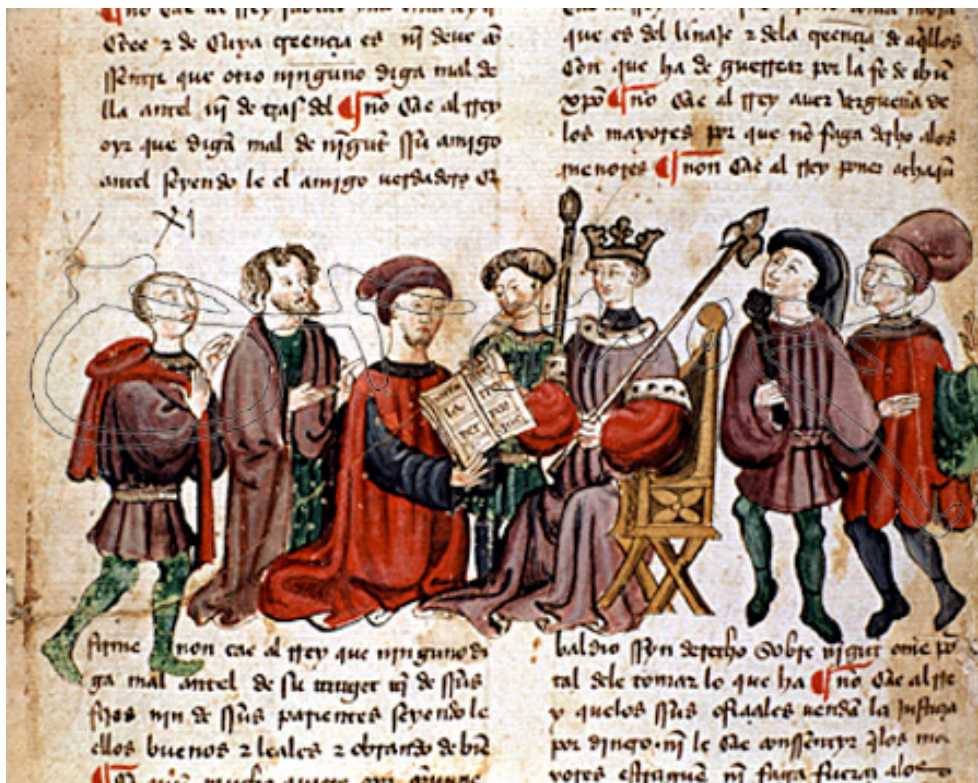 no cae al rrey
Cree & de Cuya creençia es nj deve co
ssentir que otro ninguno diga mal de
lla antel nj de tras del ¶ no Cae al rrey
oyr que diga mal de njgut ssu amigo
antel seyendo le el amigo verdadero
que es del linaje & dela creençia de aqllos
Con que ha de guerrear por la fe de ihu
xpo ¶ no Cae al rrey aver verguença de
los mayores por que no faga drho alos
menores ¶ non Cae al rrey poner achaqu
la
per
pos
firme non cae al rrey que ninguno di
ga mal antel de su muger nj de ssus
fijos nin de ssus parientes seyendo le
ellos buenos & leales & obrando de bie
baldio ssyn derecho Sobre njgut ome po
tal dele tomar lo que ha ¶ no Cae al rre
y quelos ssus ofiçiales venda la justiçia
por dinero nj le Cae consentyr qlos ma
yores nj faga fuerça alos